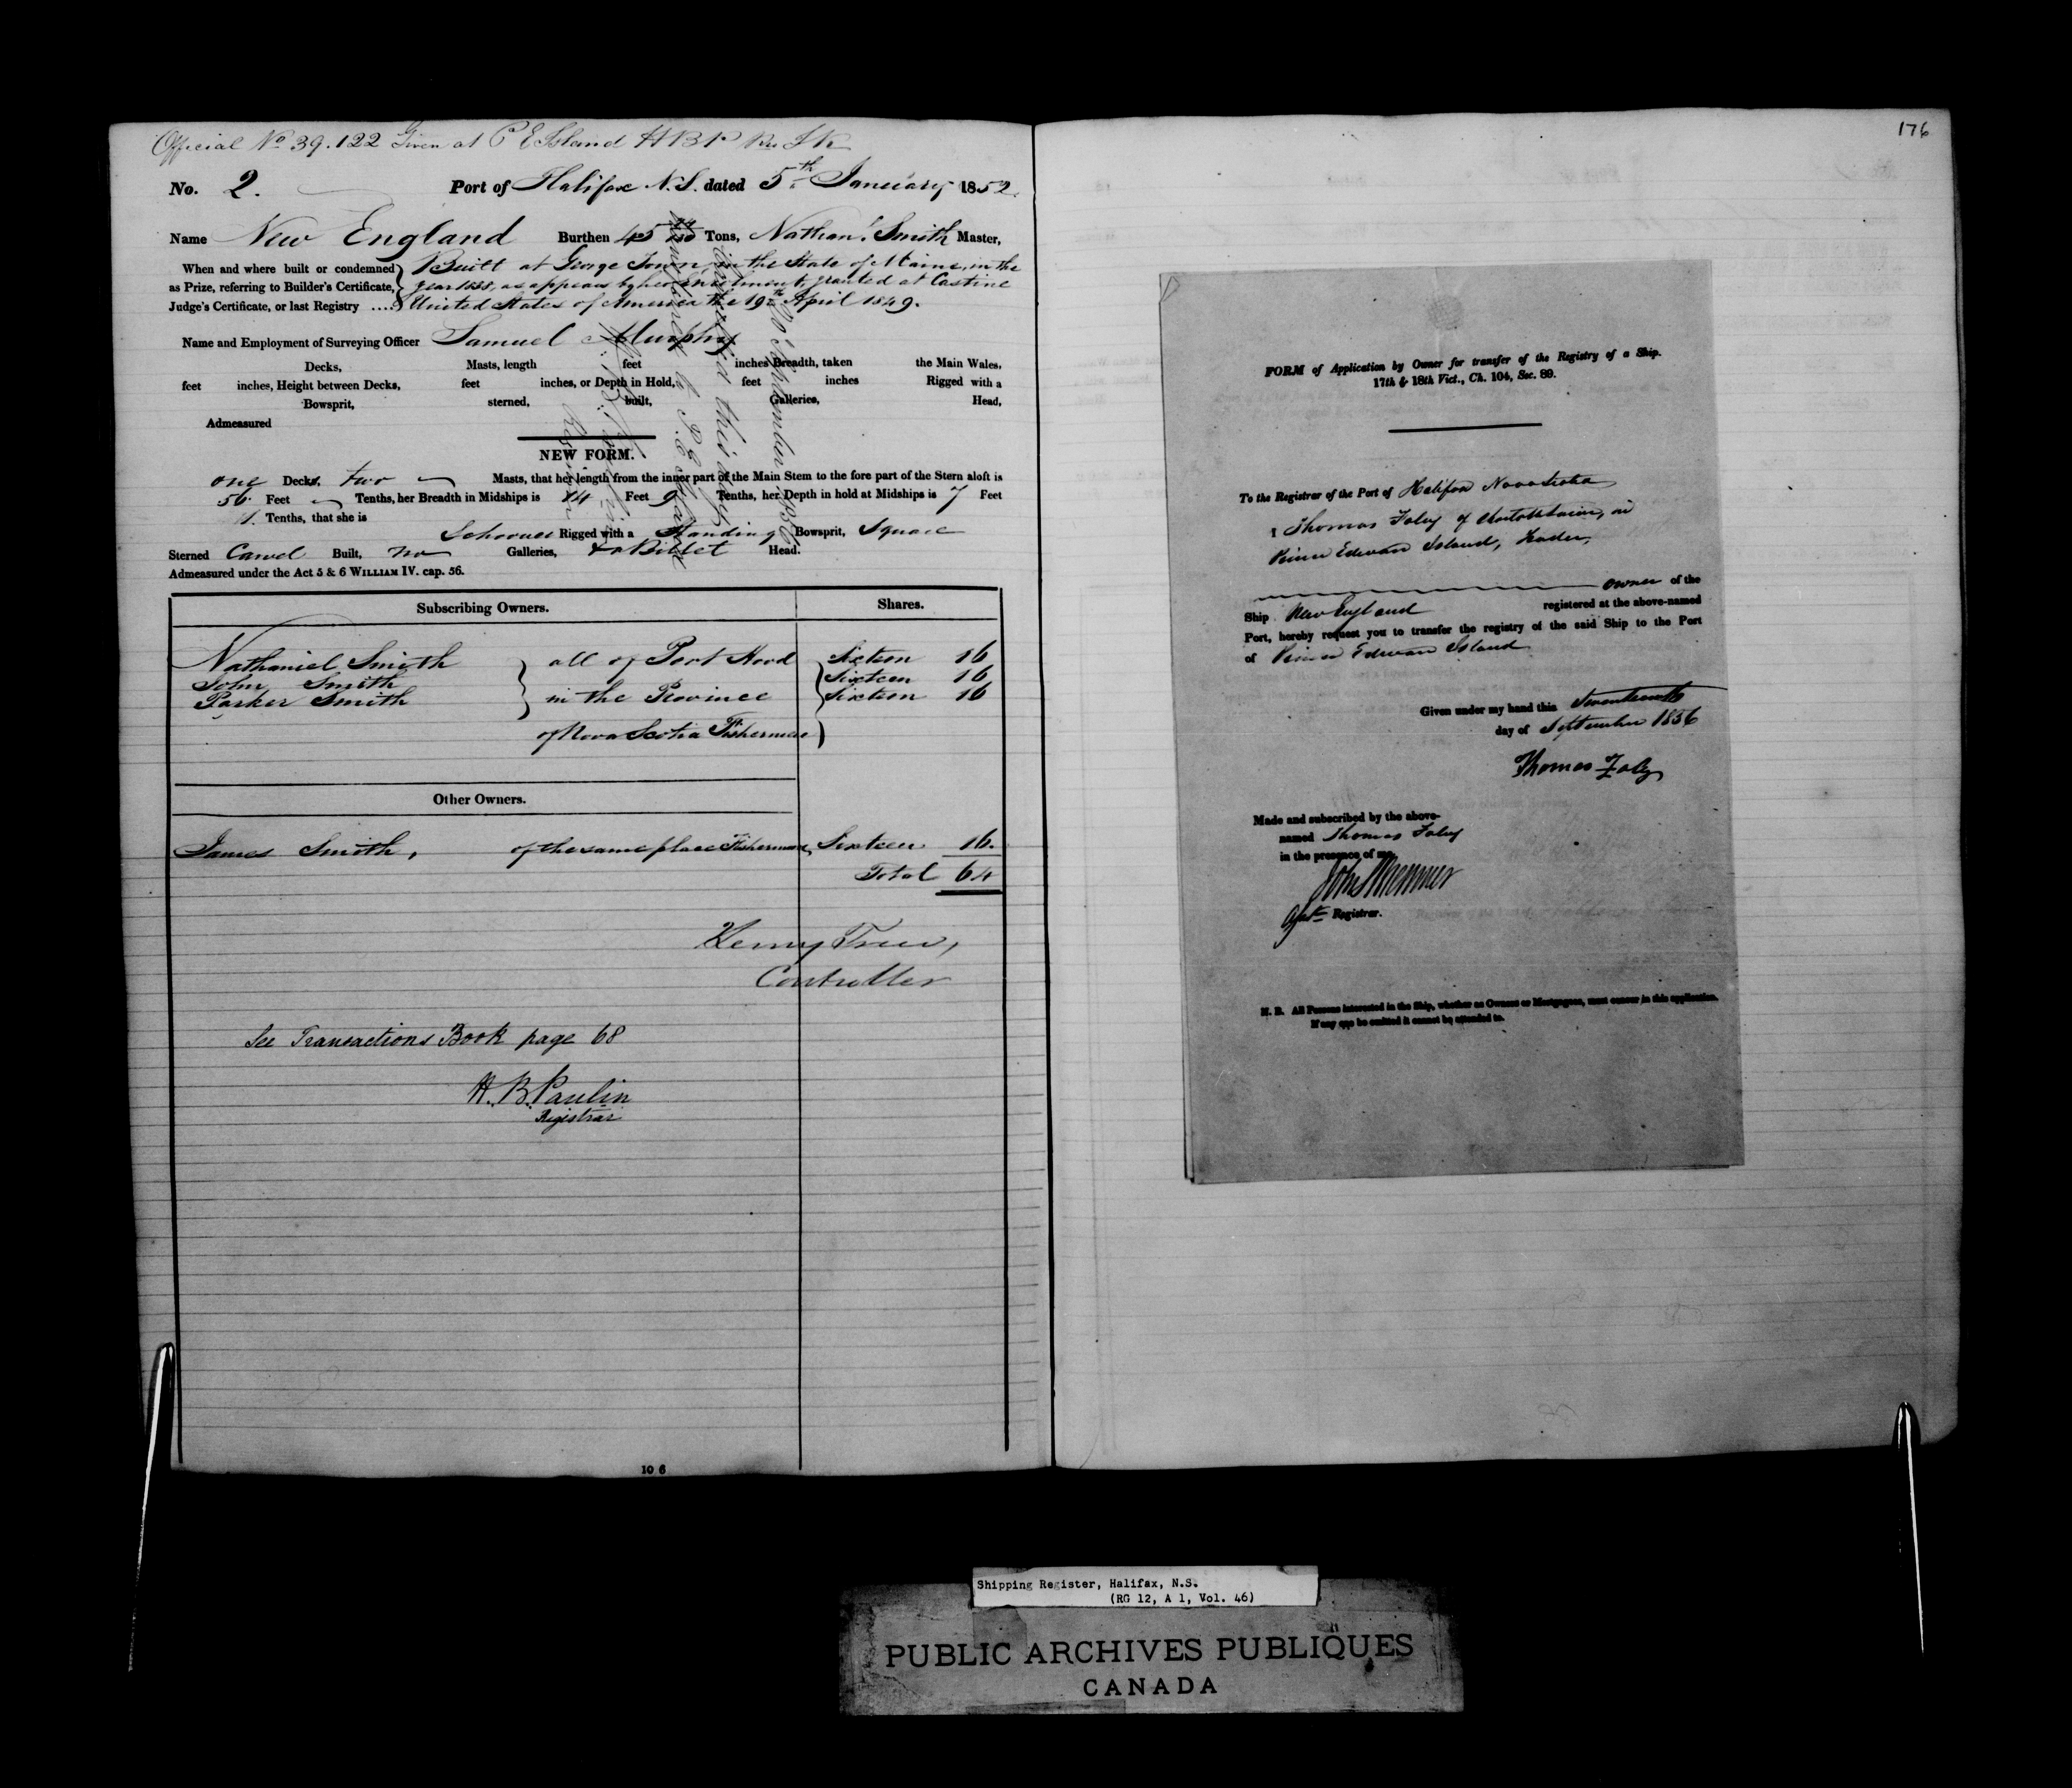 Official No 39.122 Given at P E Island H B P
No. 2. Port of Halifax N.S. dated 5th January 1852.
Name New England Burthen 45 Tons, Nathanl Smith Master,
When and where built or condemned as Prize, referring to Builder's Certificate, Judge's Certificate, or last Registry ....
Built at George Town, in the State of Maine, in the
year, as appears by her Enrolment, granted at Castine
United States of America the 19th April 1849.
Name and Employment of Surveying Officer Samuel Murphy
Decks, Masts, length feet inches Breadth, taken the Main Wales,
feet inches, Height between Decks, feet inches, or Depth in Hold, feet inches Rigged with a
Bowsprit, sterned, built, Galleries, Head,
Admeasured
NEW FORM.
one Decks, two Masts, that her length from the inner part of the Main Stem to the fore part of the Stern aloft is
56 Feet Tenths, her Breadth in Midships is 14 Feet 9 Tenths, her Depth in hold at Midships is 7 Feet
Tenths, that she is
Schooner Rigged with a Standing Bowsprit, Square
Sterned Carvel Built, no Galleries, & a Billet Head.
Admeasured under the Act 5 & 6 WILLIAM IV. cap. 56.
Transferred to P. E. Island
cancelled this day
20 September 1856
Registrar
Subscribing Owners. Shares.
Nathaniel Smith all of Port Hood Sixteen 16
John Smith Sixteen 16
Parker Smith in the Province Sixteen 16
of Nova Scotia Fishermen
Other Owners.
James Smith, of the same place Fisherman, Sixteen 16.
Total 64
Henry Trew,
Controller
See Transactions Book page 68
H. B. Paulin
Registrar
10 6
176
FORM of Application by Owner for transfer of the Registry of a Ship.
17th & 18th Vict., Ch. 104, Sec. 89.
To the Registrar of the Port of Halifax Nova Scotia
I Thomas Foley of Charlottetown, in
Prince Edward Island, Trader,
owner of the
Ship New England registered at the above-named
Port, hereby request you to transfer the registry of the said Ship to the Port
of Prince Edward Island
Given under my hand this Seventeenth
day of September 1856
Thomas Foley
Made and subscribed by the above-
named Thomas Foley
in the presence of me,
Registrar.
N. B. All Persons interested in the Ship, whether as Owners or Mortgagees, must concur in this application.
If any one be omitted it cannot be attended to.
Shipping Register, Halifax, N.S.
(RG 12, A 1, Vol. 46)
PUBLIC ARCHIVES PUBLIQUES
CANADA